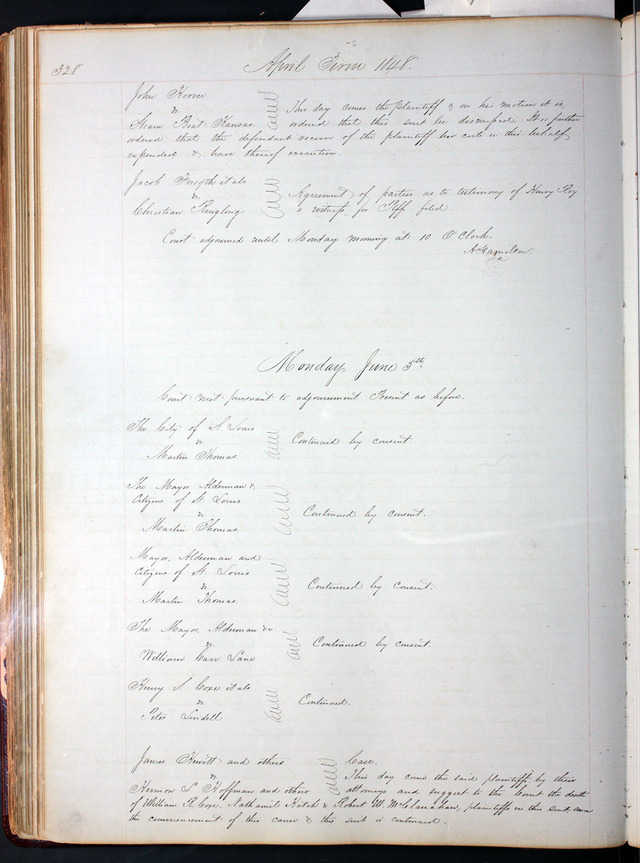 328
April Term 1848.
John Hoover
vs
Steam Boat Kansas
This day comes the plaintiff & on his motion it is
ordered that this suit be dismissed. It is further
ordered that the defendant recover of the plaintiff her costs in this behalf
expended & have thereof execution
Jacob Forsyth et als
vs
Christian Ringling
Agreement of parties as to testimony of Henry
a witness for Plff filed.
Court adjourned until Monday morning at 10 O'Clock.
A Hamilton.
Monday June 5th
Court met pursuant to adjournment Present as before.
The City of St. Louis
vs
Martin Thomas
Continued by consent.
The Mayor, Alderman &
Citizens of St. Louis
vs
Martin Thomas
Continued by consent.
Mayor, Alderman and
Citizens of St. Louis
vs
Martin Thomas.
Continued by consent.
The Mayor, Alderman &c
vs
William Carr Lane
Continued by consent.
Henry S. Coxe et als
vs
Peter Lindell
Continued.
James Hewitt and others
vs
Hermon L. Hoffman and others
Case.
This day come the said plaintiffs by their
attorneys and suggest to the Court the death
of William R. Coxe, Nathaniel Hatch & Robert M. McClanahan, plaintiffs in this suit since
the commencement of this cause & this suit is continued.